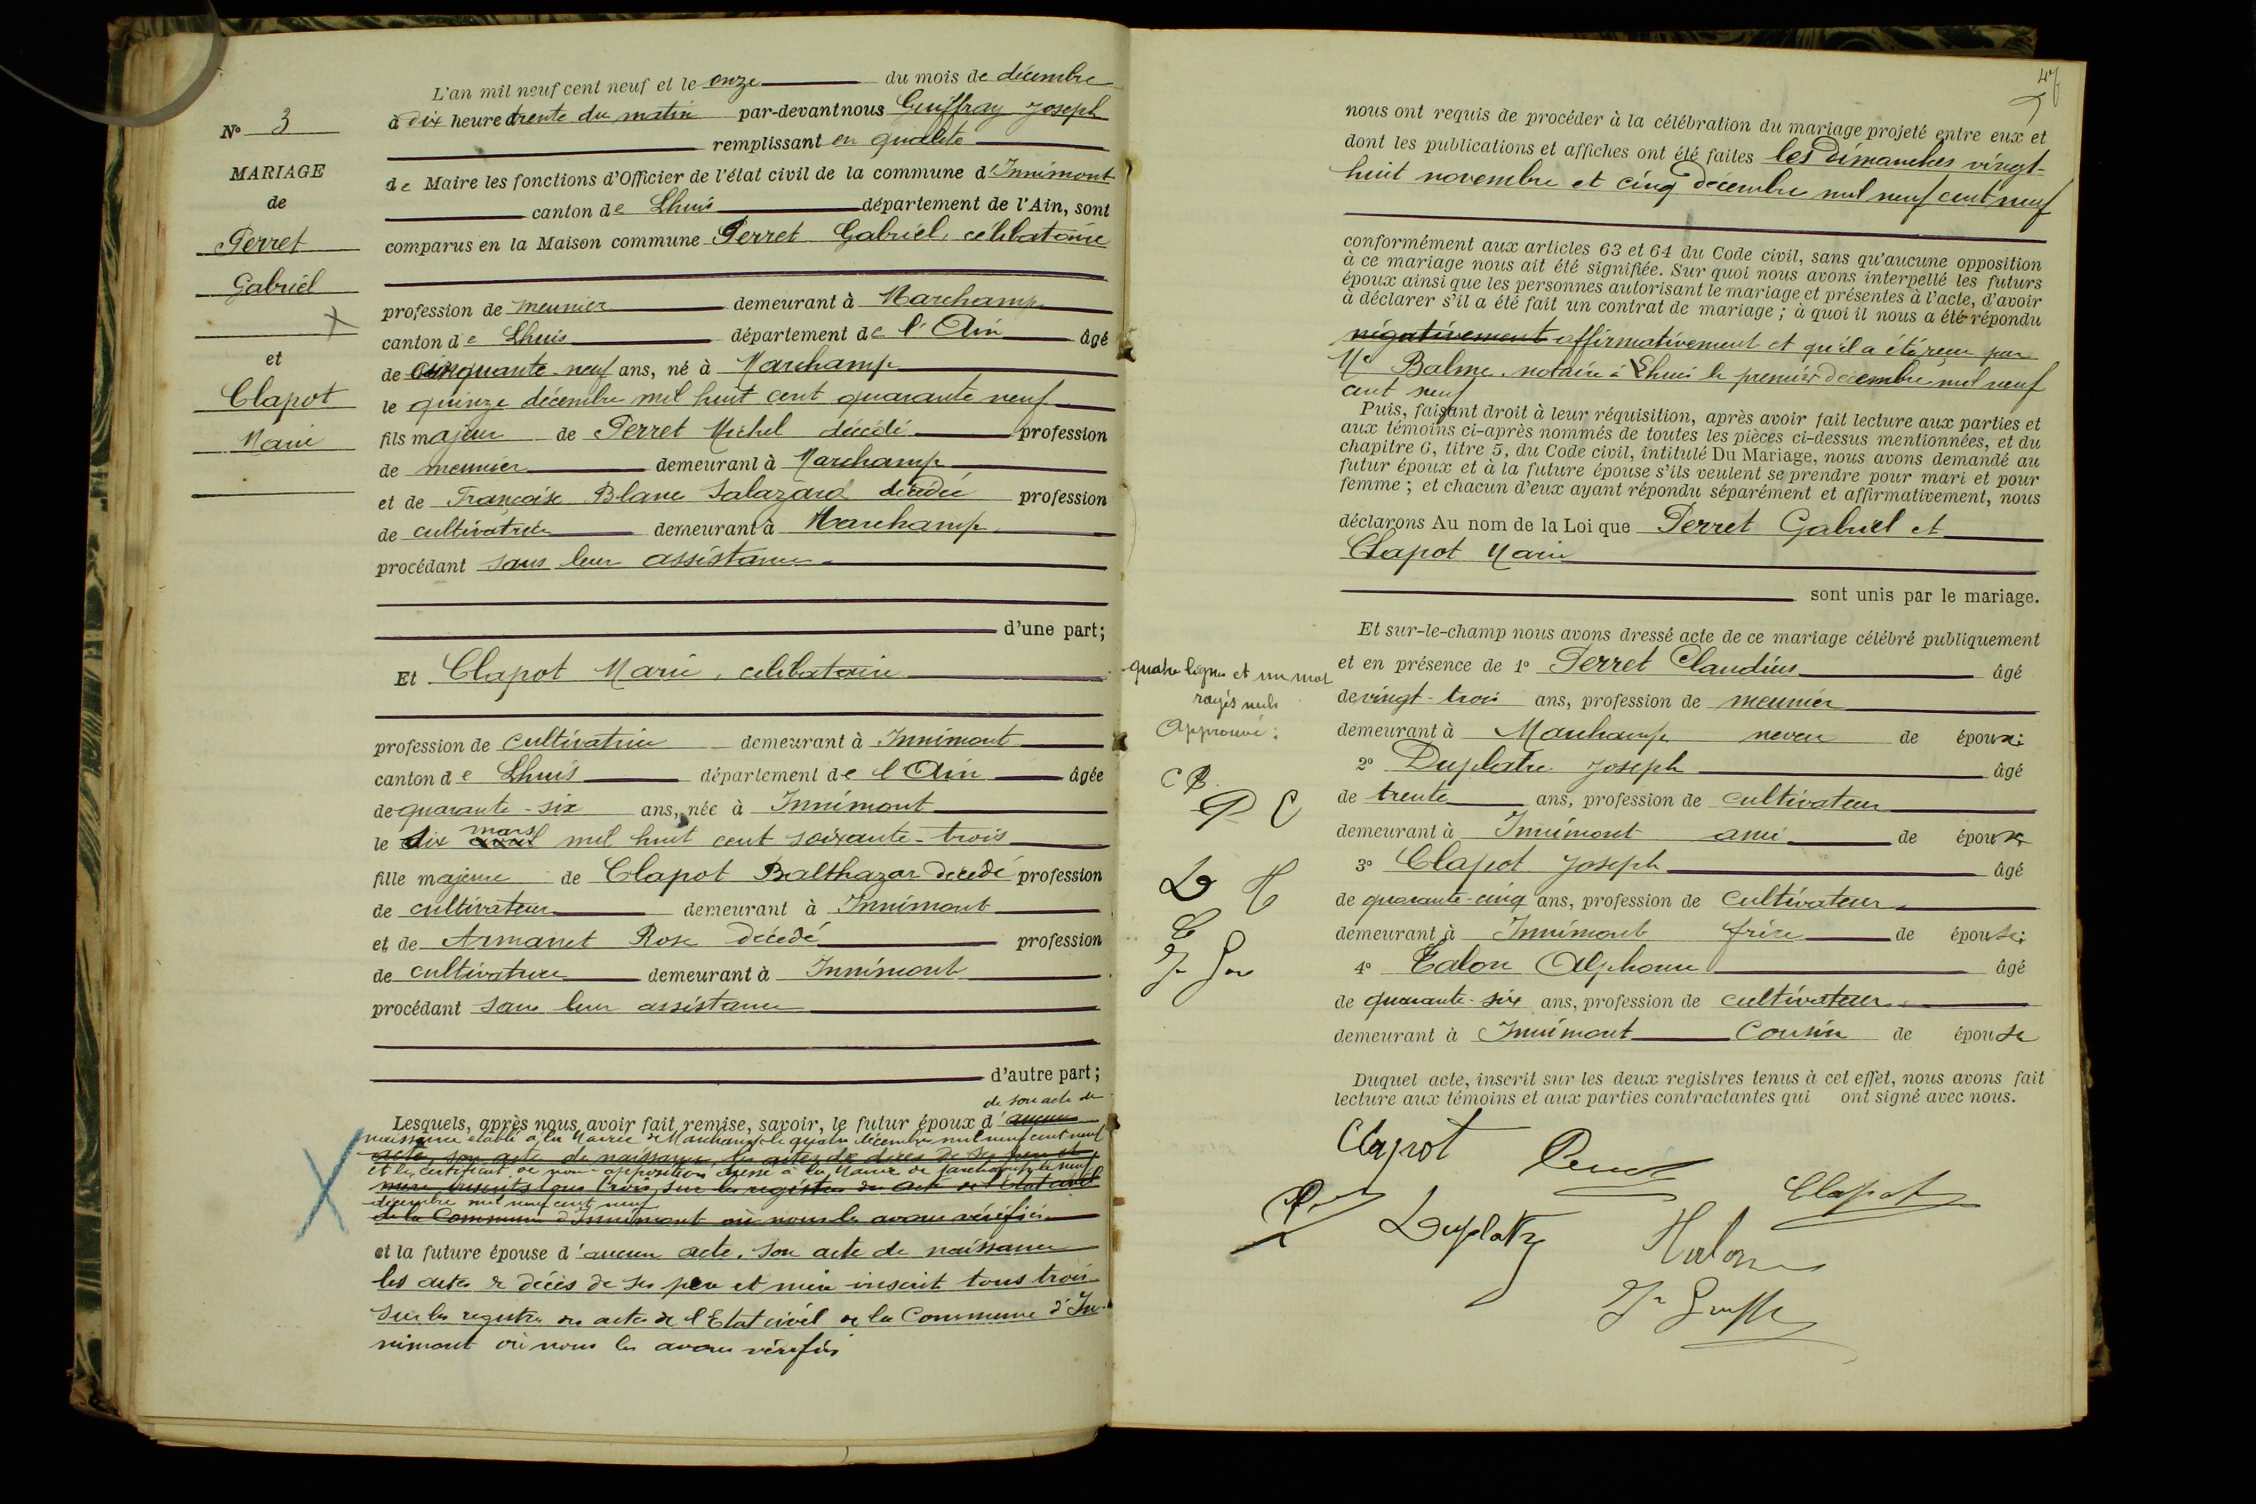 N° 3
MARIAGE
de
Perret
Gabriel
et
Clapot
Marie
L'an mil neuf cent neuf et le onze du mois de décembre
à dix heure trente du matin par-devant nous Guiffray Joseph
remplissant en qualité
de Maire les fonctions d'Officier de l'état civil de la commune d'Innimont
canton de Lhuis département de l'Ain, sont
comparus en la Maison commune Perret Gabriel, célibataire
profession de meunier demeurant à Marchamp
canton de Lhuis département de l'Ain âgé
de cinquante-neuf ans, né à Marchamp
le quinze décembre mil huit cent quarante neuf
fils majeur de Perret Michel décédé profession
de meunier demeurant à Marchamp
et de Françoise Blanc Salazard décédée profession
de cultivatrice demeurant à Marchamp
procédant sans leur assistance
d'une part;
Et Clapot Marie, célibataire
profession de cultivatrice demeurant à Innimont
canton de Lhuis département de l'Ain âgée
de quarante-six ans, née à Innimont
le dix mars mil huit cent soixante-trois
fille majeure de Clapot Balthazar décédé profession
de cultivateur demeurant à Innimont
et de Armanet Rose décédé profession
de cultivatrice demeurant à Innimont
procédant sans leur assistance
d'autre part;
de son acte de
Lesquels, après nous avoir fait remise, savoir, le futur époux d'aucun
naissance établi à la Mairie de Marchamp le quatre décembre mil neuf cent neuf
acte, son acte de naissance, les actes de décès de ses père et
et le certificat de non-opposition dressé à la Mairie de Marchamp le neuf
mère inscrits tous trois sur les registres des actes de l'Etat civil
décembre mil neuf cent neuf
de la Commune d'Innimont où nous les avons vérifiés
et la future épouse d'aucun acte. Son acte de naissance
les actes de décès de ses père et mère inscrit tous trois
sur les registres des actes de l'Etat civil de la Commune d'In-
nimont où nous les avons vérifiés
47
nous ont requis de procéder à la célébration du mariage projeté entre eux et
dont les publications et affiches ont été faites les Dimanches vingt-
huit novembre et cinq décembre mil neuf cent neuf
conformément aux articles 63 et 64 du Code civil, sans qu'aucune opposition
à ce mariage nous ait été signifiée. Sur quoi nous avons interpellé les futurs
époux ainsi que les personnes autorisant le mariage et présentes à l'acte, d'avoir
à déclarer s'il a été fait un contrat de mariage; à quoi il nous a été répondu
négativement affirmativement et qu'il a été reçu par
Me Balme, notaire à Lhuis le premier décembre mil neuf
cent neuf
Puis, faisant droit à leur réquisition, après avoir fait lecture aux parties et
aux témoins ci-après nommés de toutes les pièces ci-dessus mentionnées, et du
chapitre 6, titre 5, du Code civil, intitulé Du Mariage, nous avons demandé au
futur époux et à la future épouse s'ils veulent se prendre pour mari et pour
femme; et chacun d'eux ayant répondu séparément et affirmativement, nous
déclarons Au nom de la Loi que Perret Gabriel et
Clapot Marie
sont unis par le mariage.
Et sur-le-champ nous avons dressé acte de ce mariage célébré publiquement
et en présence de 1° Perret Claudius âgé
de vingt-trois ans, profession de meunier
demeurant à Marchamp neveu de époux;
2° Duplatre Joseph âgé
de trente ans, profession de cultivateur
demeurant à Innimont ami de époux
3° Clapot Joseph âgé
de quarante-cinq ans, profession de cultivateur
demeurant à Innimont frère de épouse;
4° Talon Alphonse âgé
de quarante-six ans, profession de cultivateur
demeurant à Innimont Cousin de épouse
Duquel acte, inscrit sur les deux registres tenus à cet effet, nous avons fait
lecture aux témoins et aux parties contractantes qui ont signé avec nous.
quatre lignes et un mot
rayés nuls
Approuvé:
Clapot
Clapot
Duplatre